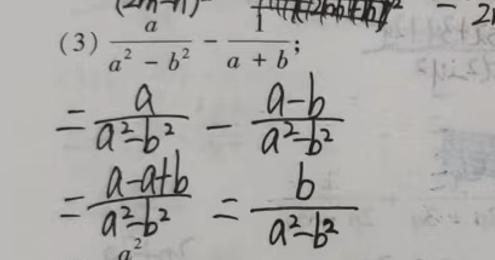 (3) \frac{a}{a² - b²} - \frac{1}{a + b};
= \frac{a}{a²-b²} - \frac{a-b}{a²-b²}
= \frac{a-a+b}{a²-b²} = \frac{b}{a²-b²}
a²